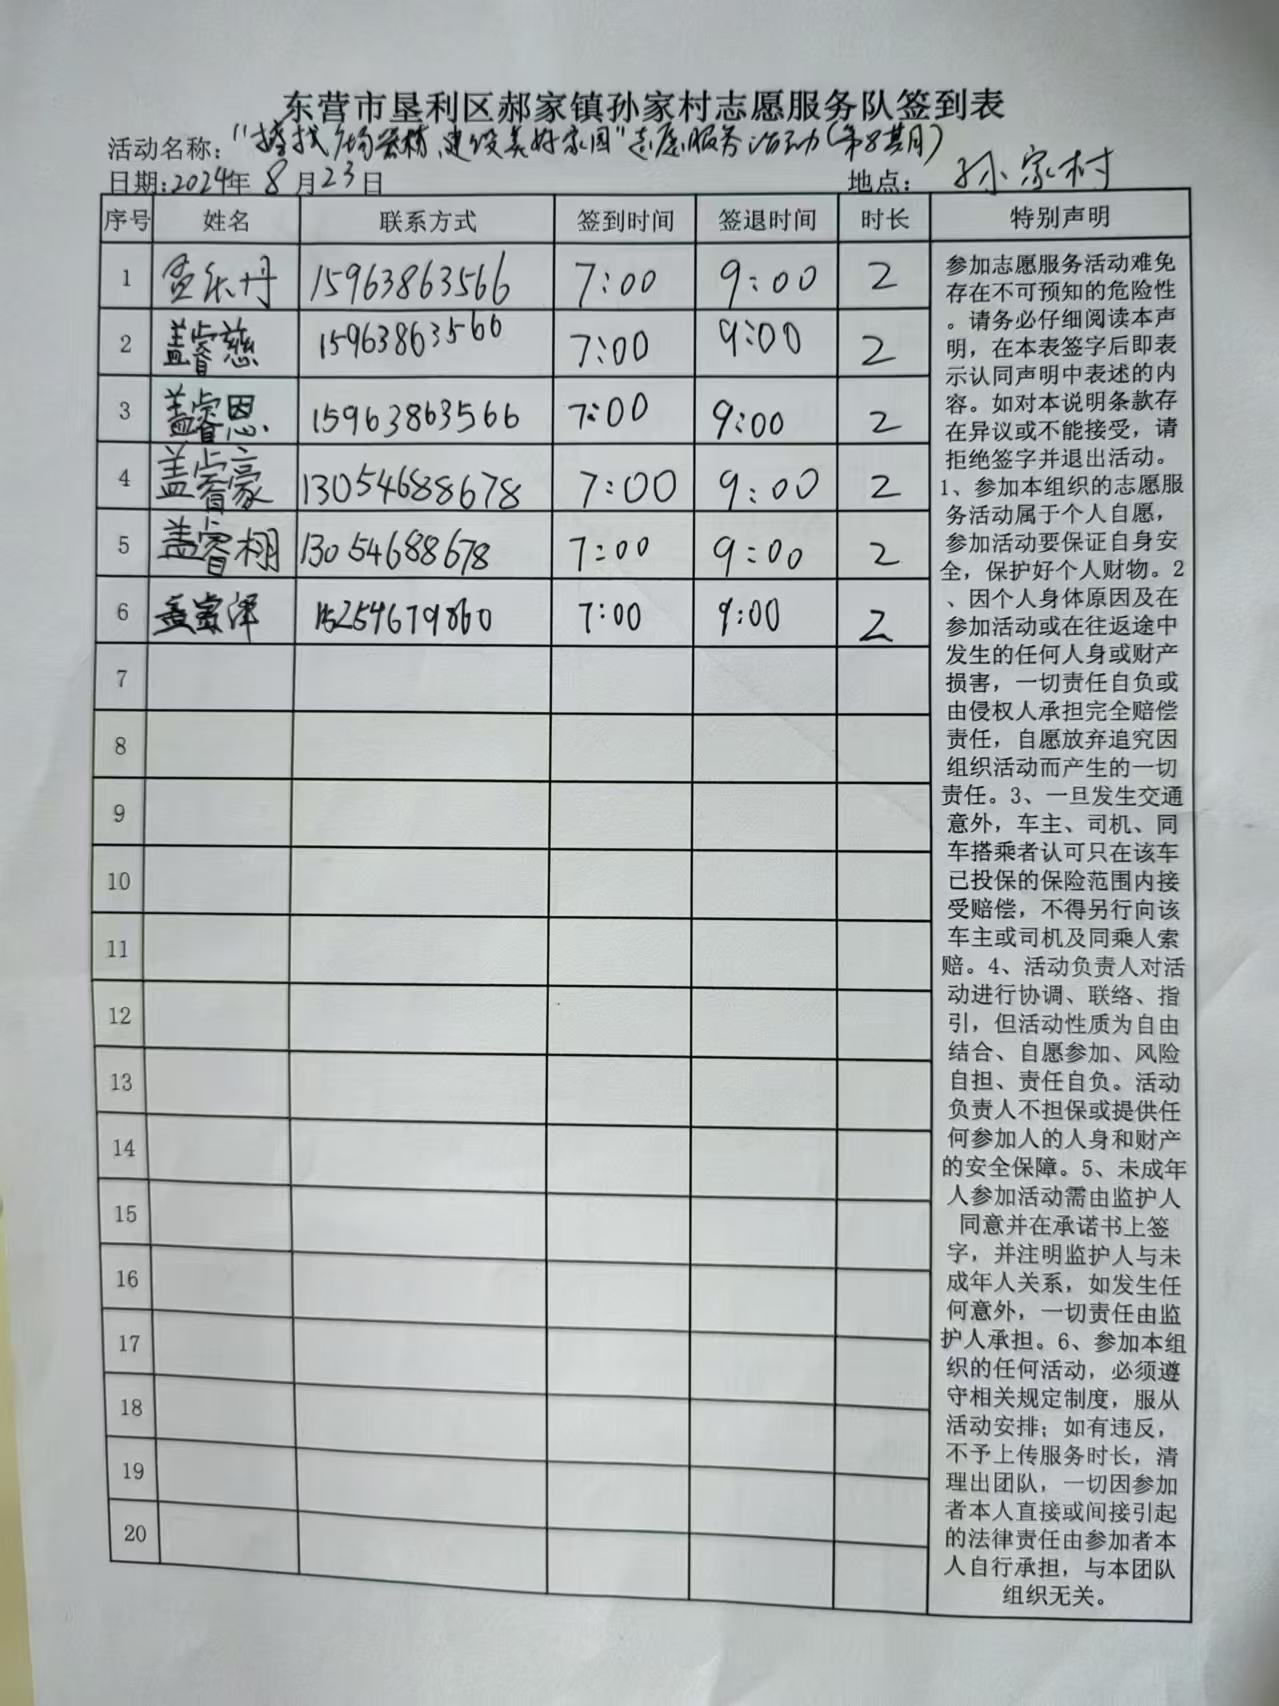 东营市垦利区郝家镇孙家村志愿服务队签到表
活动名称："擦找 健身器材、建设美好家园"志愿服务活动(第8期)
日期:2024年8月23日 地点：孙家村
序号 姓名 联系方式 签到时间 签退时间 时长 特别声明
1 15963863566 7:00 9:00 2
2 盖睿慈 15963863566 7:00 9:00 2
3 盖睿恩 15963863566 7:00 9:00 2
4 盖睿豪 13054688678 7:00 9:00 2
5 盖睿栩 13054688678 7:00 9:00 2
6 15254679860 7:00 9:00 2
7
8
9
10
11
12
13
14
15
16
17
18
19
20
参加志愿服务活动难免
存在不可预知的危险性
。请务必仔细阅读本声
明，在本表签字后即表
示认同声明中表述的内
容。如对本说明条款存
在异议或不能接受，请
拒绝签字并退出活动。
1、参加本组织的志愿服
务活动属于个人自愿，
参加活动要保证自身安
全，保护好个人财物。2
、因个人身体原因及在
参加活动或在往返途中
发生的任何人身或财产
损害，一切责任自负或
由侵权人承担完全赔偿
责任，自愿放弃追究因
组织活动而产生的一切
责任。3、一旦发生交通
意外，车主、司机、同
车搭乘者认可只在该车
已投保的保险范围内接
受赔偿，不得另行向该
车主或司机及同乘人索
赔。4、活动负责人对活
动进行协调、联络、指
引，但活动性质为自由
结合、自愿参加、风险
自担、责任自负。活动
负责人不担保或提供任
何参加人的人身和财产
的安全保障。5、未成年
人参加活动需由监护人
同意并在承诺书上签
字，并注明监护人与未
成年人关系，如发生任
何意外，一切责任由监
护人承担。6、参加本组
织的任何活动，必须遵
守相关规定制度，服从
活动安排；如有违反，
不予上传服务时长，清
理出团队，一切因参加
者本人直接或间接引起
的法律责任由参加者本
人自行承担，与本团队
组织无关。